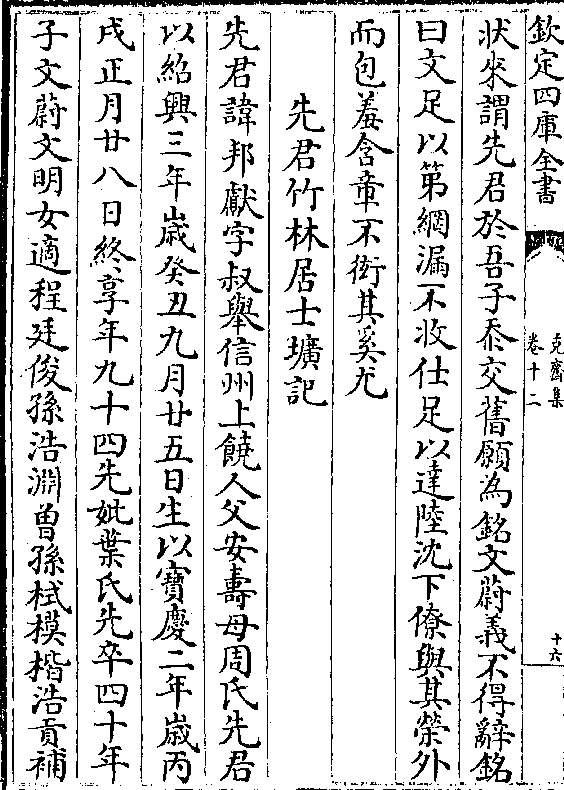 欽定四庫全書
克齋集
卷十二
十六
狀來謂先君於吾子忝交舊願為銘文蔚義不得辭銘
曰文足以第網漏不收仕足以達陸沈下僚與其榮外
而包羞含章不衒其奚尤
先君竹林居士壙記
先君諱邦獻字叔舉信州上饒人父安壽母周氏先君
以紹興三年歲癸丑九月廿五日生以寶慶二年歲丙
戌正月廿八日終享年九十四先妣葉氏先卒四十年
子文蔚文明女適程廷俊孫浩淵曾孫栻模楷浩貢補